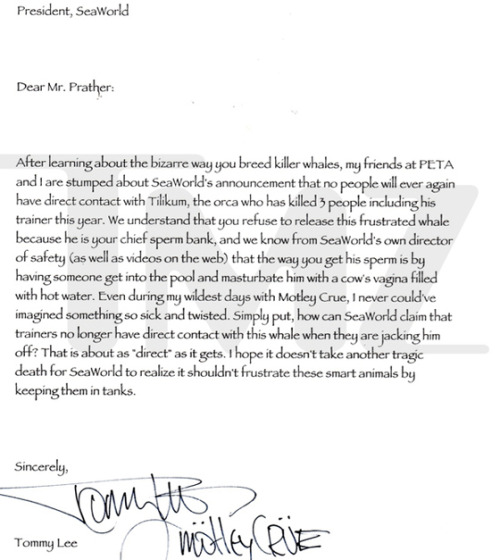 President, SeaWorld
Dear Mr. Prather:
After learning about the bizarre way you breed killer whales, my friends at PETA
and I are stumped about SeaWorld's announcement that no people will ever again
have direct contact with Tilikum, the orca who has killed 3 people including his
trainer this year. We understand that you refuse to release this frustrated whale
because he is your chief sperm bank, and we know from SeaWorld's own director
of safety (as well as videos on the web) that the way you get his sperm is by
having someone get into the pool and masturbate him with a cow's vagina filled
with hot water. Even during my wildest days with Motley Crue, I never could've
imagined something so sick and twisted. Simply put, how can SeaWorld claim that
trainers no longer have direct contact with this whale when they are jacking him
off? That is about as "direct" as it gets. I hope it doesn't take another tragic
death for SeaWorld to realize it shouldn't frustrate these smart animals by
keeping them in tanks.
TMZ
Sincerely,
Tommy Lee
Tommy Lee
mötley CRÜE